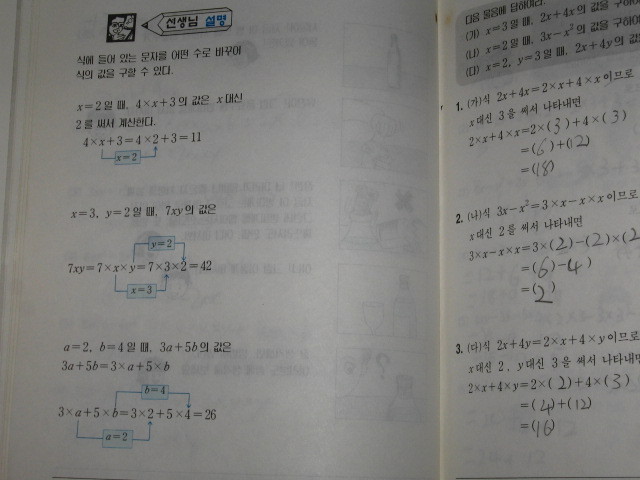 선생님 설명
식에 들어 있는 문자를 어떤 수로 바꾸어
식의 값을 구할 수 있다.
x=2일 때, 4×x+3의 값은 x대신
2를 써서 계산한다.
4×x+3=4×2+3=11
x=2
x=3, y=2일 때, 7xy의 값은
y=2
7xy=7×x×y=7×3×2=42
x=3
a=2, b=4일 때, 3a+5b의 값은
3a+5b=3×a+5×b
b=4
3×a+5×b=3×2+5×4=26
a=2
다음 물음에 답하여라.
(가) x=3일 때, 2x+4x의 값을 구하여
(나) x=2일 때, 3x-x²의 값을 구하여
(다) x=2, y=3일 때, 2x+4y의 값
1. (가)식 2x+4x=2×x+4×x이므로
x대신 3을 써서 나타내면
2×x+4×x=2×(3)+4×(3)
=(6)+(12)
=(18)
2. (나)식 3x-x²=3×x-x×x이므로
x대신 2를 써서 나타내면
3×x-x×x=3×(2)-(2)×(2
=(6)-4)
=(2)
3. (다)식 2x+4y=2×x+4×y이므로
x대신 2, y대신 3을 써서 나타내면
2×x+4×y=2×(2)+4×(3)
=(4)+(12)
=(16)